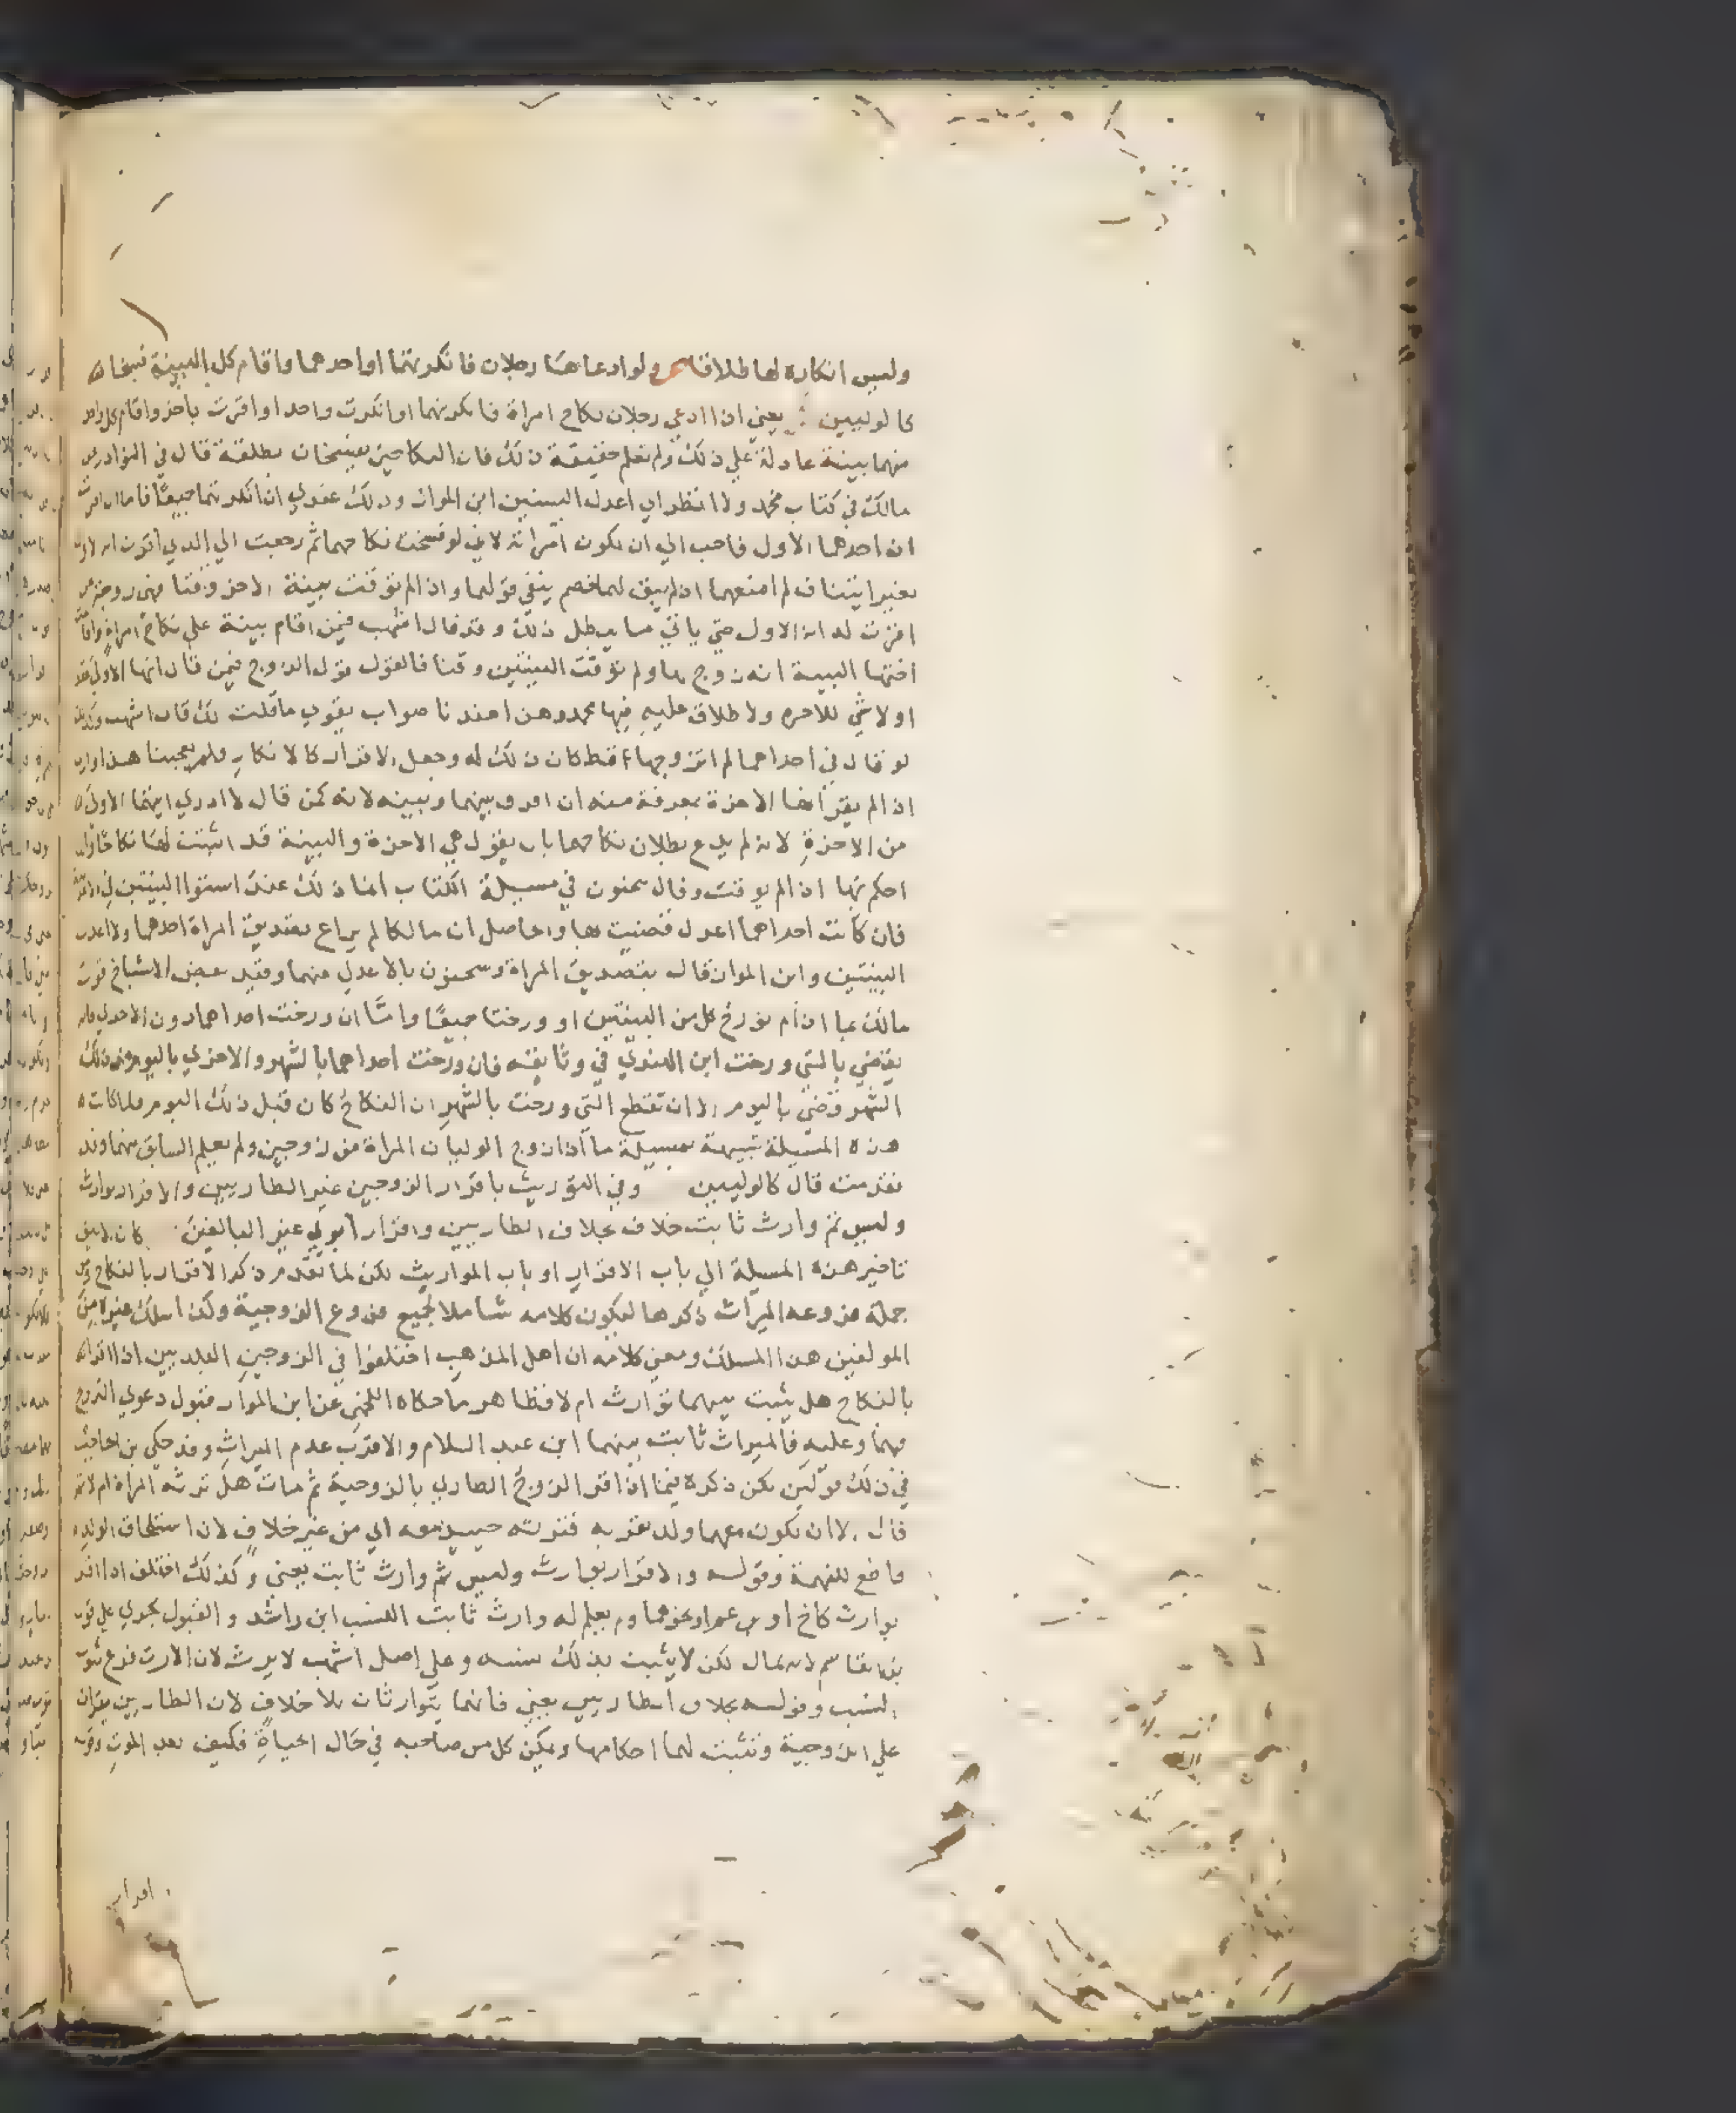 وليس انكاره لها طلاقا ولو ادعاها رجلان فانكرتهما او احدهما واقام كل البينة فسخا
كالوليين يعني اذا ادعي رجلان نكاح امراة فانكرتهما او انكرت واحدا او اقرت باخر واقام كل واحد
منهما بينة عادلة علي ذلك ولم تعلم حقيقة ذلك فان النكاحين يفسخان بطلقة قال في النوادر عن
مالك في كتاب محمد ولا انظر الي اعدل البينتين ابن المواز وذلك عندي اذا انكرتهما جميعا فاما ان اقرت
ان احدهما الاول فاحب الي ان يكون امراته لاني لو فسخت نكاحهما ثم رجعت الي الذي اقرت انه الاول
بغير اثنتنا ف لم امنعهما اذ لم يبق لهما خصم ينفي قولهما واذا لم توقت بينة الاخر وقتا فهي زوجة من
اقرت له انه الاول حتي ياتي ما يبطل ذلك وقد قال اشهب فيمن اقام بينة علي نكاح امراة واقامت
اختها البينة انه زوجها ولم توقت البينتين وقتا فالقول قول الزوج فيمن قال انها الاولي
او لا شي للاخرة ولا طلاق عليه فيها محمد وهذا عندنا صواب يقول ما قلت لك قال اشهب وكذلك
لو قال في احداهما لم اتزوجها قط كان ذلك له وجعل الاقرار كالانكار ولم يعجبنا هذا واري
اذا لم يقر انها الاخرة بمعرفة منه ان افرق بينهما وبينه لانه كمن قال لا ادري ايتهما الاولي
من الاخرة لانه لم يدع بطلان نكاحهما بان يقول هي الاخرة والبينة قد اثبتت لها نكاحا
احكم بها اذا لم يوقت وقال سحنون في مسيلة الكتاب انما ذلك عند استوا البينتين في
فان كانت احداهما اعدل قضيت بها والحاصل ان مالكا لم يراع تصديق المراة احدهما ولا اعدل
البينتين وابن المواز قال بتصديق المراة وسحنون بالاعدل منهما وقيد بعض الاشياخ قول
مالك بما اذا لم تورخ كل من البينتين او ورختا جميعا واما ان ورخت احداهما دون الاخري فانه
يقضي بالتي ورخت ابن الهندي في وثايقه فان ورخت احداهما بالشهر والاخري باليوم من ذلك
الشهر قضي باليوم الا ان تقطع التي ورخت بالشهر ان النكاح كان قبل ذلك اليوم ولما كانت
هذه المسيلة شبيهة بمسيلة ما اذا زوج الوليان المراة من زوجين ولم يعلم السابق منهما وقد
تقدمت قال كالوليين وفي التوريث باقرار الزوجين غير الطاريين والاقرار بوارث
وليس ثم وارث ثابت خلاف بخلاف الطاريين واقرار ابوي غير البالغين كان يليق
تاخير هذه المسيلة الي باب الاقرار او باب المواريث لكن لما تقدم ذكر الاقرار بالنكاح ومن
جملة فروعه الميراث ذكرها ليكون كلامه شاملا لجميع فروع الزوجية وكذا سلك غيره من
المولفين هذا المسلك ومعني كلامه ان اهل المذهب اختلفوا في الزوجين البلديين اذا اقرا
بالنكاح هل يثبت بينهما توارث ام لا فظاهر ما حكاه اللخمي عن ابن المواز قبول دعوي الزوج
فيهما وعليه فالميراث ثابت بينهما ابن عبد السلام والاقرب عدم الميراث وقد حكي بن الحاجب
في ذلك قولين لكن ذكره فيما اذا اقر الزوج الطاري بالزوجية ثم مات هل ترثه المراة ام لا
قال الا ان يكون معهما ولد يقر به فترثه حينيذ معه اي من غير خلاف لان استلحاق الولد
قاطع للتهمة وقوله والاقرار بوارث وليس ثم وارث ثابت يعني وكذلك اختلف اذا اقر
بوارث كاخ او بن عم او نحوهما ولم يعلم له وارث ثابت النسب ابن راشد والقبول يجري علي قول
بن القاسم لانه مال لكن لا يثبت بذلك نسبه وعلي اصل اشهب لا يرث لان الارث فرع ثبوت
النسب وقوله بخلاف الطاريين يعني فانهما يتوارثان بلا خلاف لان الطاريين يقران
علي الزوجية وتثبت لهما احكامها ويمكن كل من صاحبه في حال الحياة فكيف بعد الموت وقوله
اقرار